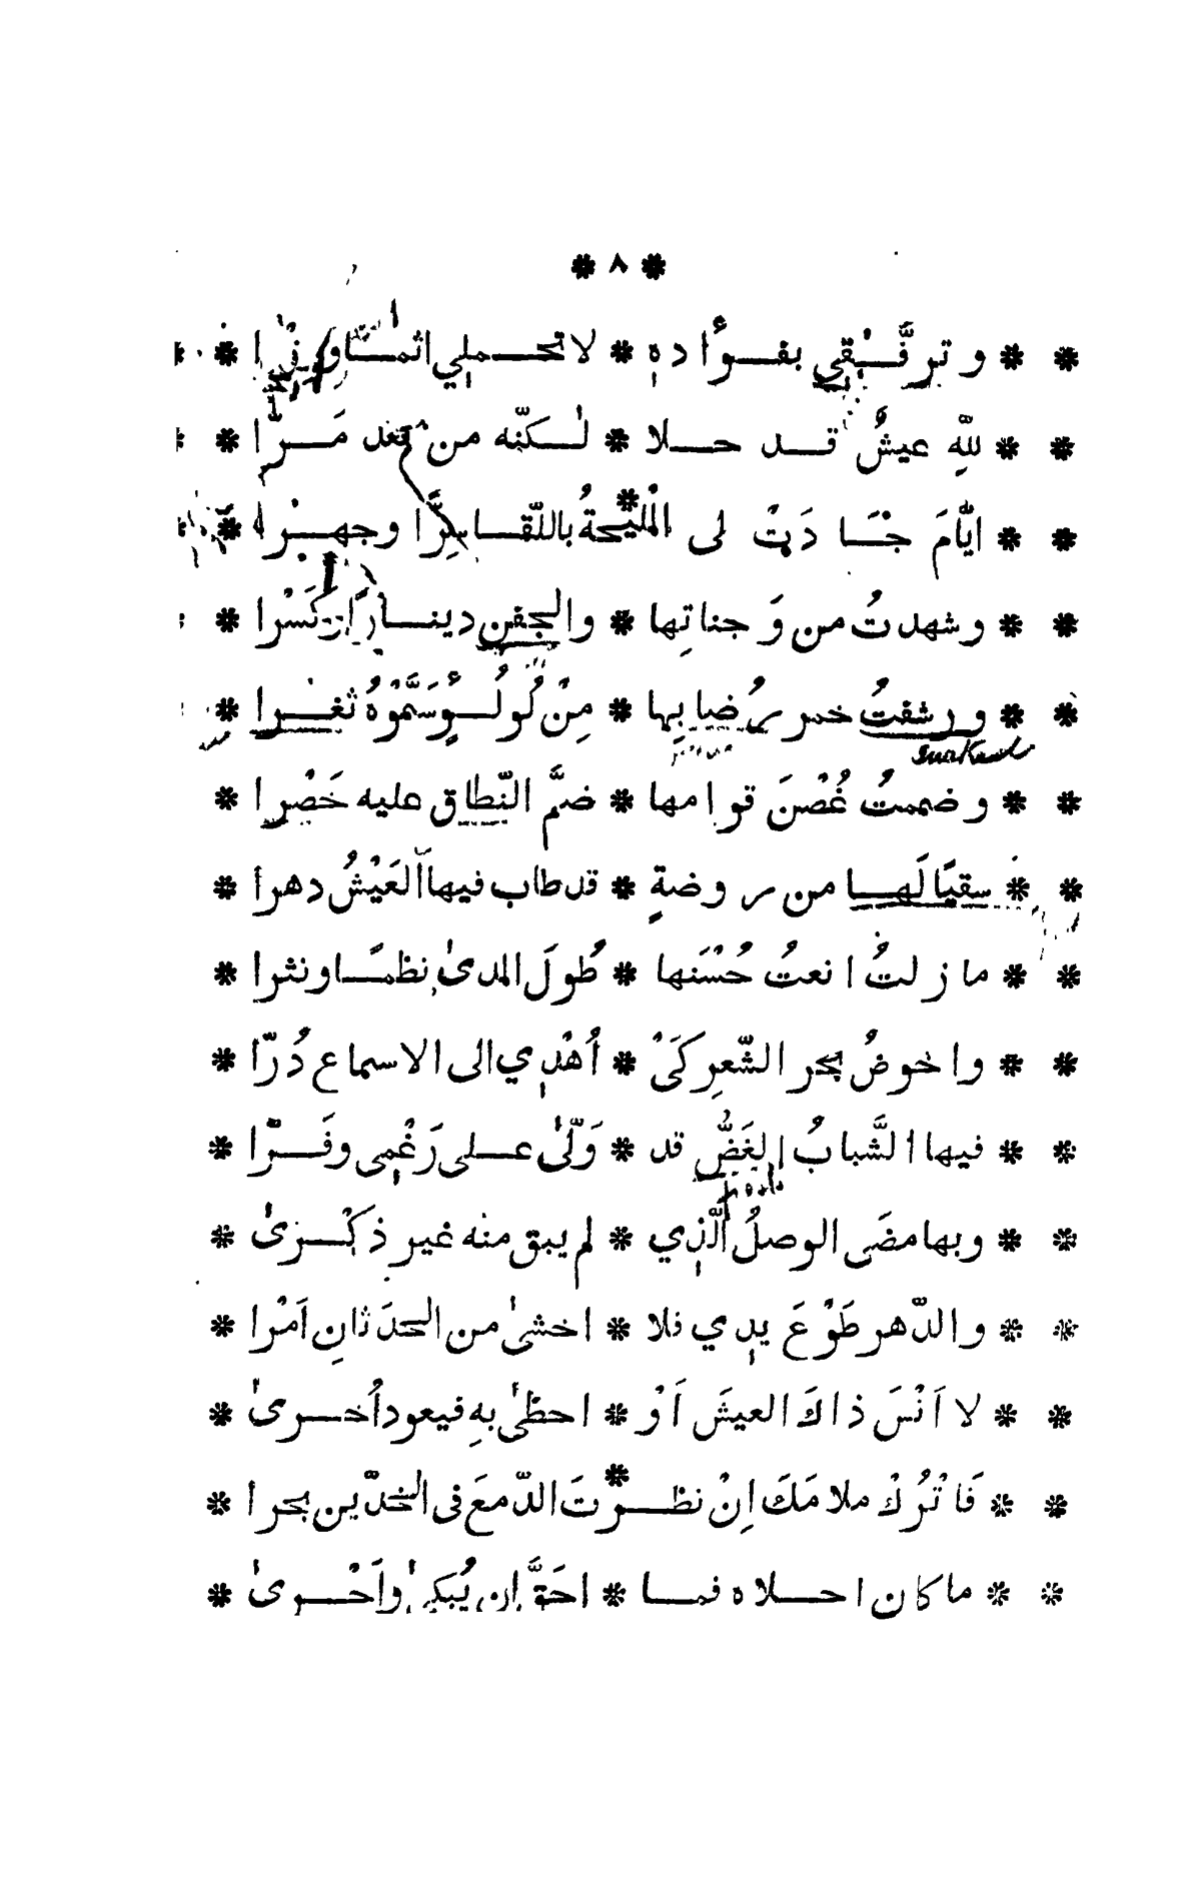 * ٨ *
* * وترفَّقي بفؤاده * لا تحملي اثمًا ووزرا *
* * للهِ عيشٌ قد حلا * لٰكنّه من بعد مَرّا *
* * ايّامَ جَادَتْ لى المليحةُ * باللّقا سِرًّا وجهرا *
* * وشهدتُ من وَجناتِها * والجفن دينارًا وكَسْرا *
* * ورشفتُ خمر رُضابِها * مِنْ لُولُوءٍ سَمَّوْهُ ثغرا *
suaKed
* * وضممتُ غُصْنَ قوامها * ضمَّ النّطاق عليه خَصْرا *
* * سقيًا لَها من روضةٍ * قد طاب فيها العَيْشُ دهرا *
* * ما زلتُ انعتُ حُسْنَها * طُولَ المدىٰ نظمًا ونثرا *
* * واخوضُ بحر الشّعرِ كَىْ * اُهْدِي الى الاسماع دُرّا *
* * فيها الشَّبابُ الغَضُّ قد * وَلّىٰ على رَغْمِى وفَرّا *
* * وبها مضَى الوصلُ الَّذِي * لم يبق منه غير ذكْرىٰ *
* * والدّهر طَوْعَ يدِي فلا * اخشىٰ من الحدَثانِ اَمْرا *
* * لا اَنْسَ ذاكَ العيشَ اَوْ * احظىٰ بهِ فيعود اُخرىٰ *
* * فَاتْرُكْ ملامَكَ اِنْ نظرْتَ * الدّمعَ فى الخدّين بحرا *
* * ما كان احلاه فما * احَقَّ ان يُبكىٰ واَحْرىٰ *